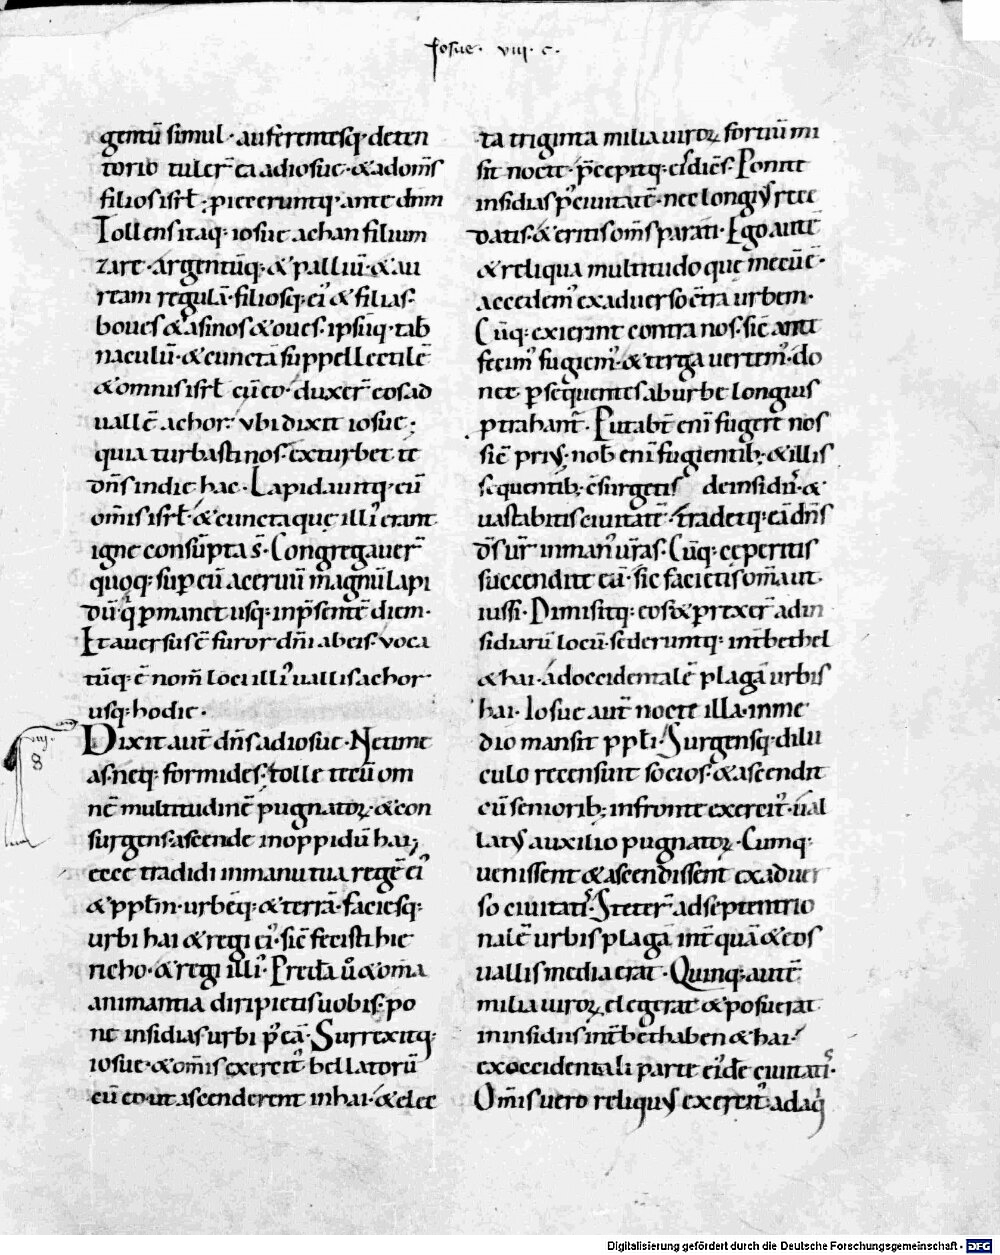 Iosue. viii. c.
gentū simul· auferentesq; deten
torio tulerт̄ ea adiosue· & adom̄s
filios isrł· p̱ieceruntq; ante dn̄m
Tollens itaq; iosue achan filium
zare· argentūq; & palliū· & au
ream regulā· filiosq; ei᾽ & filias·
boues & asinos & oues· ipsūq; tab̄
naculū· & cunctā suppellectilē
& omnis isrł cū eo· duxer̄ eos ad
uallē achor· vbi dixit iosue;
quia turbasti nos· exturbet te
dn̄s indie hac· Lapidauitq; eū
om̄is isrł· & cuncta que illi᾽ erant
igne consūpta s̄· Congregauer̄
quoq; sup eū aceruū magnū lapi
dū q̇ pmanet usq; inp̄sentē diem·
Et auersus ē furor dn̄i abeis· voca
tūq; ē nom̄ loci illi᾽ uallis achor·
usq; hodie·
viij.
8
Dixit aut̄ dn̄s adiosue· Ne time
as· neq; formides· tolle tecū om
nē multitudinē pugnatoꝝ· & con
surgens· ascende inoppidū hai;
ecce tradidi inmanu tua regē ei᾽
& ppłm· urbēq; & terrā· faciesq;
urbi hai & regi ei᾽· sic̄ fecisti hie
richo· & regi illi᾽· Preda᷈ u̇ & om̄a
animantia diripietis uobis· po
ne insidias urbi p᾽ eā· Surrexitq;
iosue· & om̄is exercit᾽ bellatorū
cū eo ut ascenderent inhai· & elec
ta triginta milia uiroꝝ fortiū mi
sit nocte· p̄cepitq; eis dicēs· Ponite
insidias p᾽ ciuitatē· nec longi᾽ rece
datis· & eritis om̄s parati· Ego autē
& reliqua multitudo que mecū ē·
accedem᾽ exaduerso c̄tra urbem·
Cūq; exierint contra nos· sic̄ ante
fecim᾽ fugiem᾽· & terga uertem᾽· do
nec psequentes aburbe longius
ptrahant᷈· Putabt̄ enī fugere nos
sic̄ pri᾽· nob̄ enī fugientib; & illis
sequentib; c̄surgetis deinsidiis· &
uastabitis ciuitatē· tradetq; eā dn̄s
d̄s ur̄ inman᾽ ur̄as· Cūq; ceperitis
succendite eā· sic facietis om̄a ut
iussi· Dimisitq; eos & prexer̄ adin
sidiarū locū· sederuntq; int̄ bethel
& hai· adoccidentalē plagā urbis
hai· Iosue aut̄ nocte illa· inme
dio mansit ppłi· Surgensq; dilu
culo recensuit socios· & ascendit
cū seniorib; infronte exercit᾽· ual
lat᾽ auxilio pugnatoꝝ· Cumq;
uenissent & ascendissent exaduer
so ciuitatis· Steter̄ adseptentrio
nalē urbis plagā int̄ quā & eos
uallis media erat· Quinq; autē
milia uiroꝝ elegerat & posuerat
ininsidiis int̄ bethaben & hai·
exoccidentali parte ei᾽de ciuitatis·
Om̄is uero reliquus exercit᾽ adaq̇
Digitalisierung gefördert durch die Deutsche Forschungsgemeinschaft - DFG